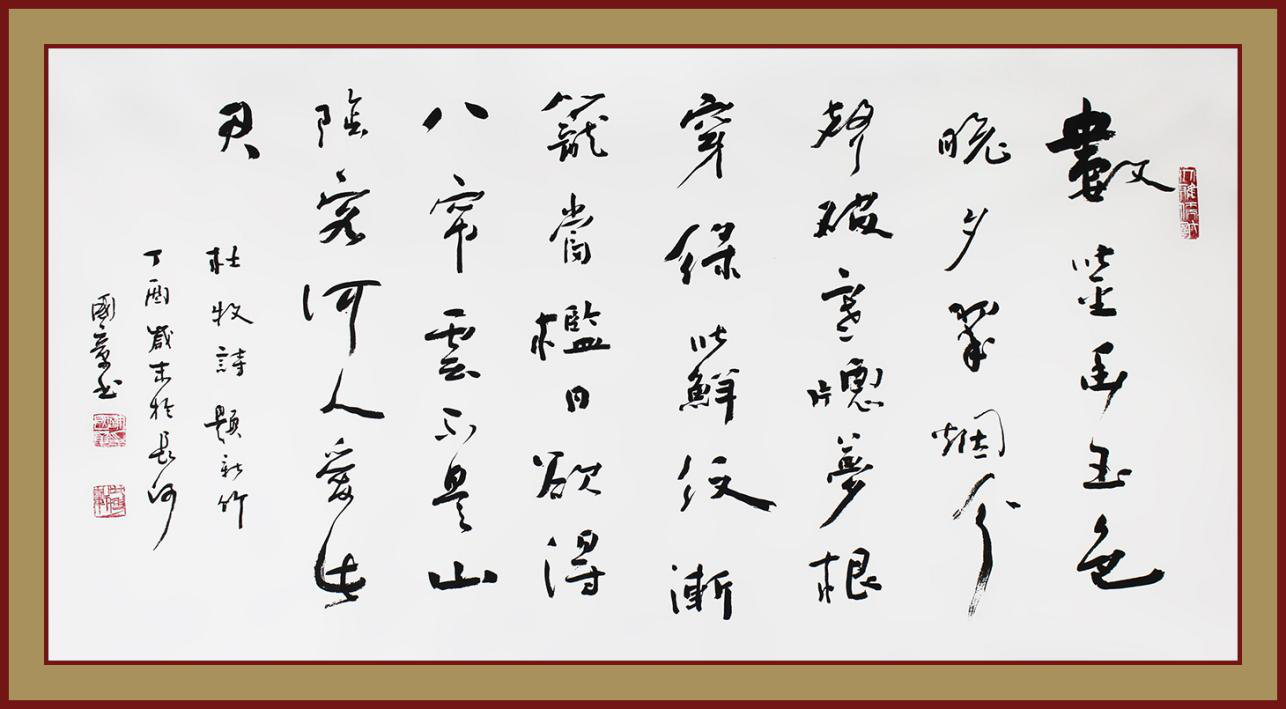 數莖幽玉色
曉夕翠烟分
聲破寒牕夢根
穿綠蘚紋漸
籠當檻日欲得
入帘雲不是山
陰客何人愛此
君
杜牧詩題新竹
丁酉歲末於長河
國章书